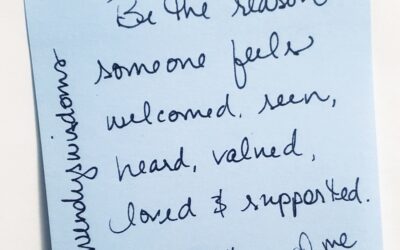 Be the reason
someone feels
welcomed, seen,
heard, valued,
loved & supported.
me
wendyswisdoms